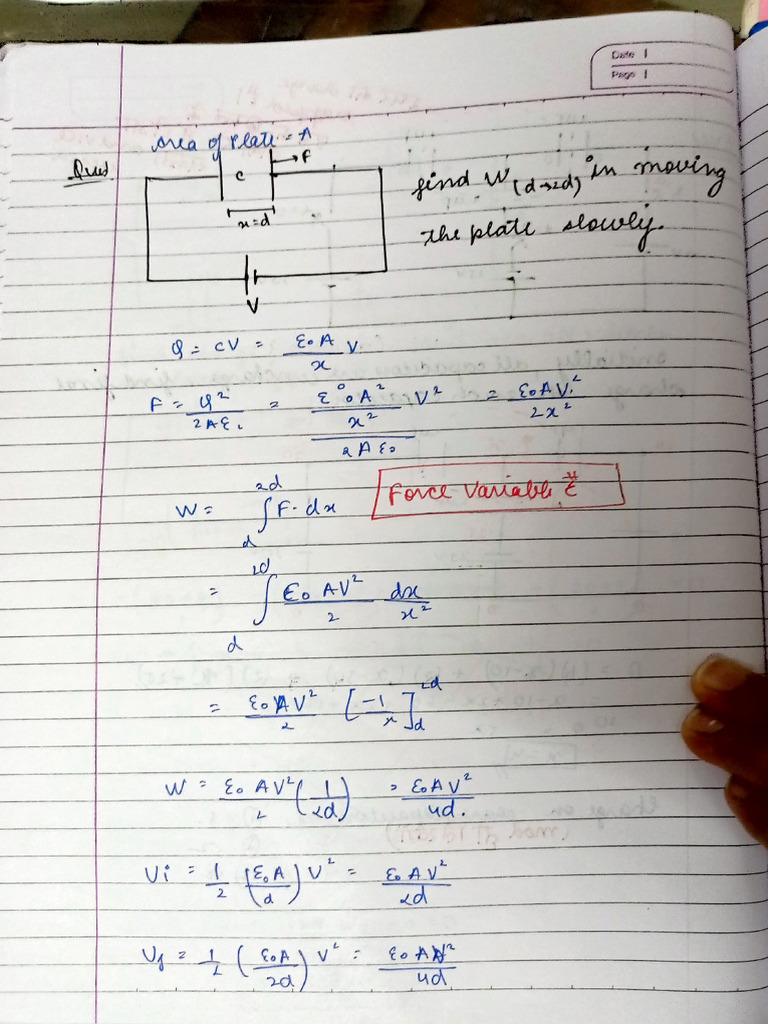 Date
Page
Area of Plate = A
Ques
C
→ F
x=d
V
find W(d→2d) in moving
the plate slowly.
Q = CV = ε₀A/x V
F = Q²/2Aε₀ = (ε₀²A²/x² V²)/(2Aε₀) = ε₀AV²/2x²
W = ∫_d^2d F·dx
Force Variable
= ∫_d^2d ε₀AV²/2 dx/x²
= ε₀AV²/2 [-1/x]_d^2d
W = ε₀AV²/2 (1/2d) = ε₀AV²/4d.
Ui = 1/2 (ε₀A/d) V² = ε₀AV²/2d
Uf = 1/2 (ε₀A/2d) V² = ε₀AV²/4d